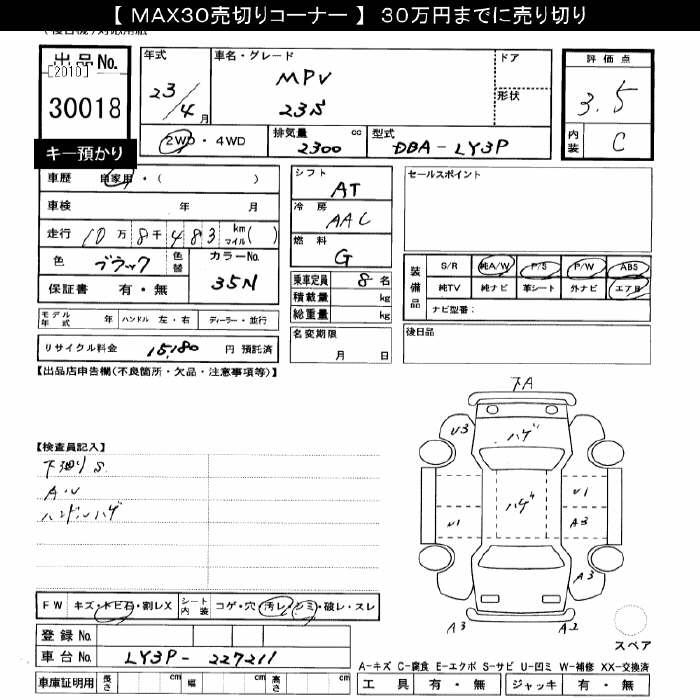 【 MAX30売切りコーナー 】 30万円までに売り切り
出品No.
[2010]
30018
キー預かり
年式
23/4月
車名・グレード
MPV
23S
ドア
形状
評価点
3.5
内装
C
2WD・4WD
排気量
cc
2300
型式
DBA-LY3P
車歴 自家用・( )
車検 年 月
走行 10万8千483 km マイル( )
色 ブラック 色替
カラーNo.
35N
保証書 有・無
シフト
AT
冷房
AAC
燃料
G
乗車定員 8名
積載量 kg
総重量 kg
名変期限
月 日
セールスポイント
装備品
S/R 純A/W P/S P/W ABS
純TV 純ナビ 革シート 外ナビ エアB
ナビ型番:
後日品
モデル年式 年 ハンドル 左・右 ディーラー・並行
リサイクル料金 15,180 円 預託済
【出品店申告欄(不良箇所・欠品・注意事項等)】
【検査員記入】
下廻りS
A.U
ハンドルハゲ
下A
U3
ハゲ
ハゲ
U1
U1
A3
A3
A3
A2
FW キズ・トビ石・割レX
シート内装 コゲ・穴・汚レ・シミ・破レ・スレ
登録No.
車台No. LY3P-227211
車庫証明用 長さ cm 幅 cm 高さ cm
スペア
A-キズ C-腐食 E-エクボ S-サビ U-凹ミ W-補修 XX-交換済
工具 有・無 ジャッキ 有・無